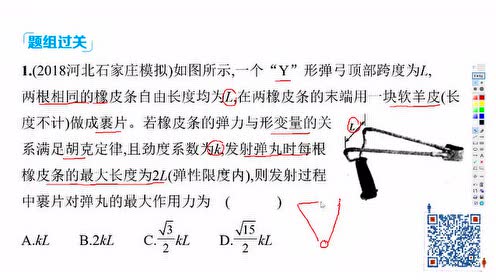 题组过关
1.(2018河北石家庄模拟)如图所示,一个“Y”形弹弓顶部跨度为L,
两根相同的橡皮条自由长度均为L,在两橡皮条的末端用一块软羊皮(长
度不计)做成裹片。若橡皮条的弹力与形变量的关
系满足胡克定律,且劲度系数为k,发射弹丸时每根
橡皮条的最大长度为2L(弹性限度内),则发射过程
中裹片对弹丸的最大作用力为 ( )
L
A.kL B.2kL C.$\frac{\sqrt{3}}{2}$kL D.$\frac{\sqrt{15}}{2}$kL